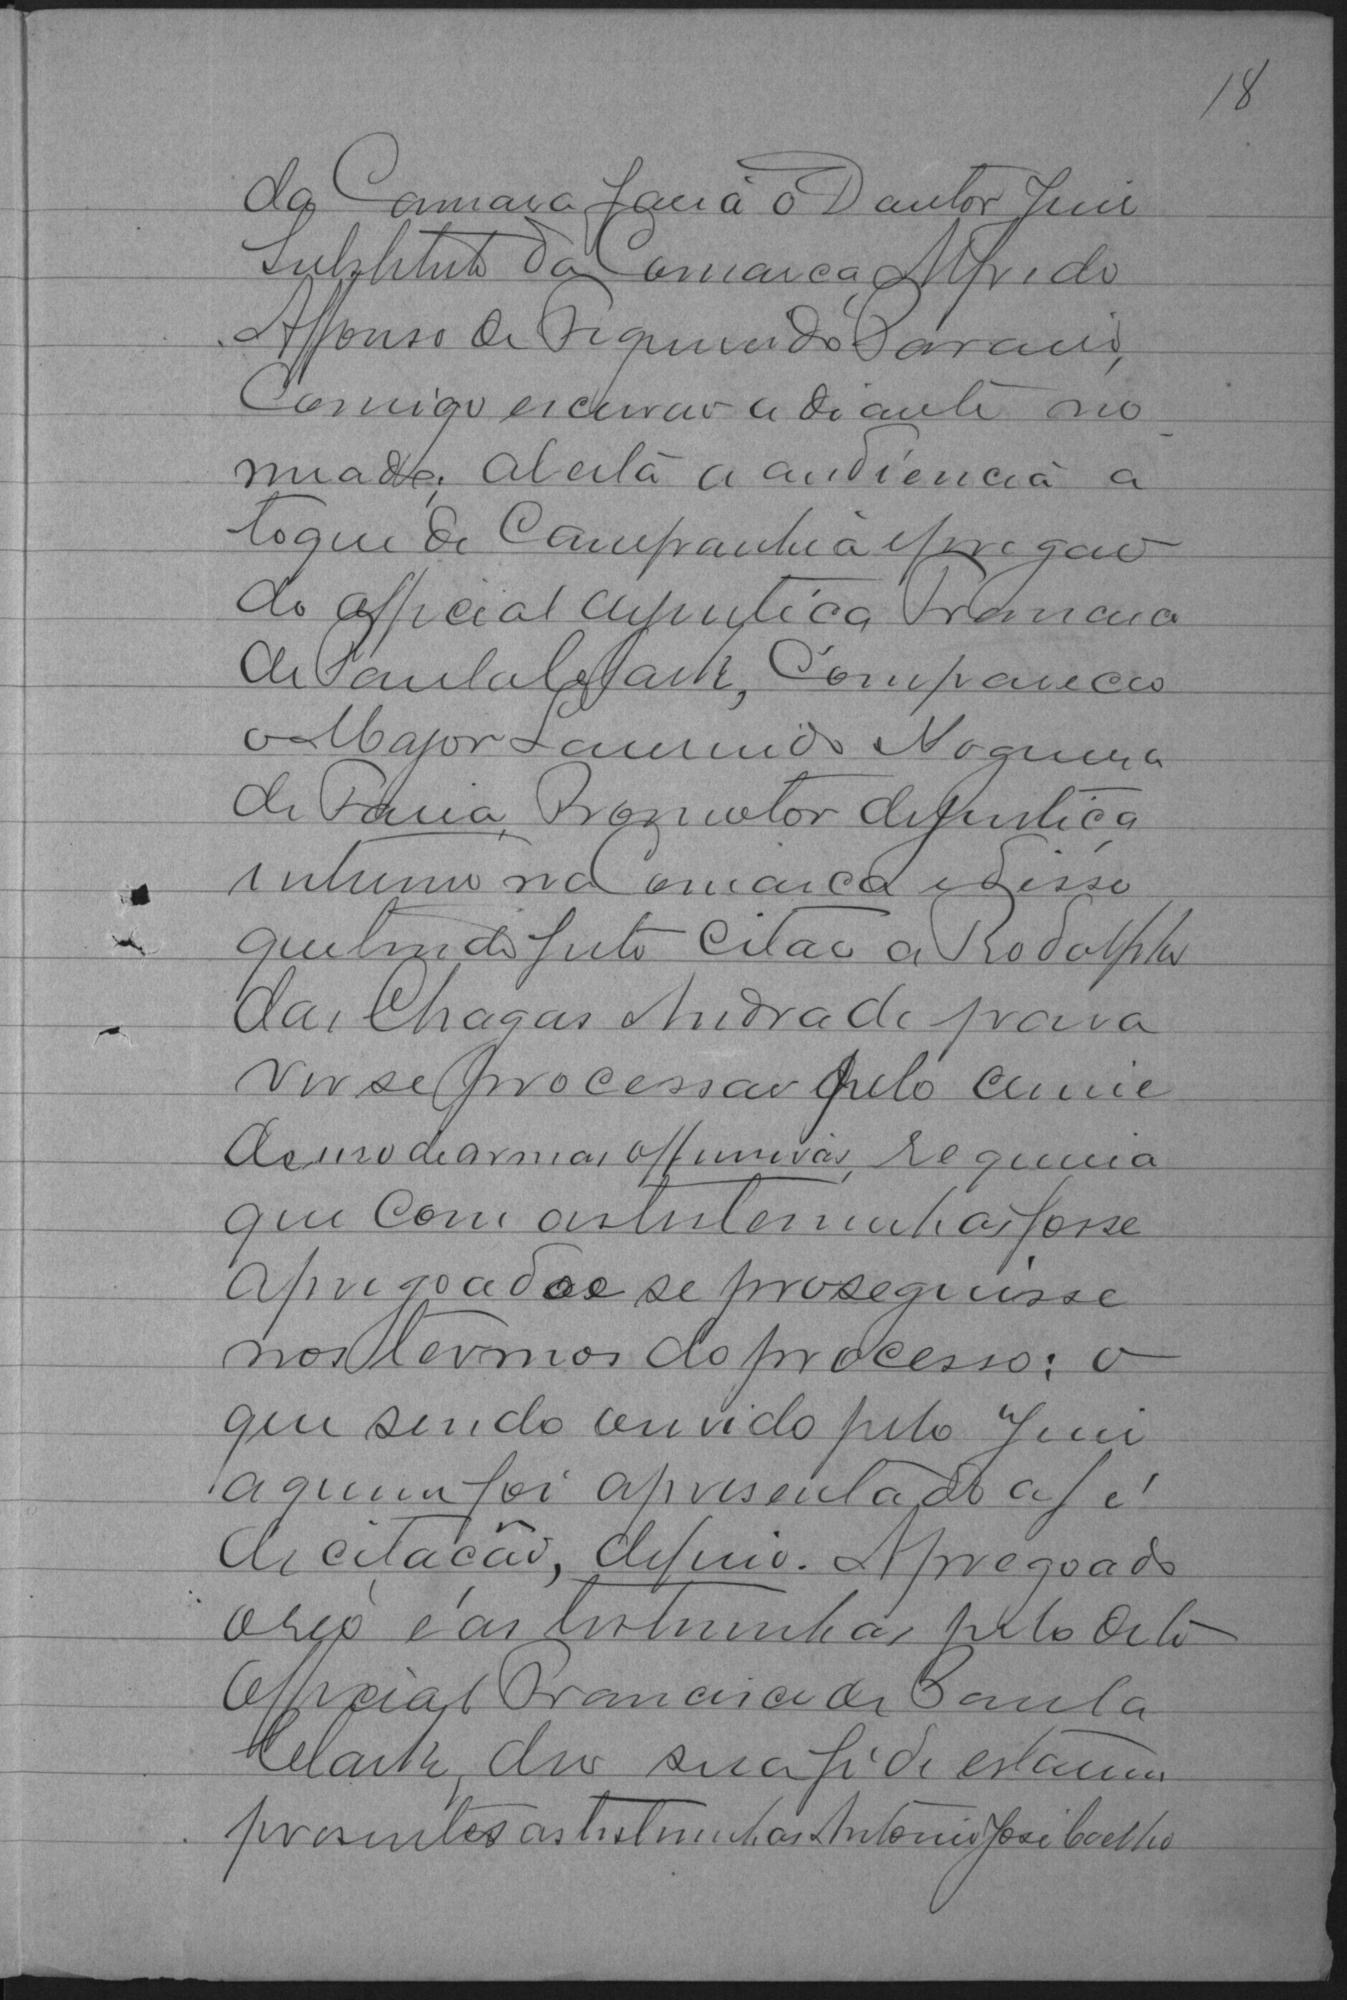 18
da Camara fazia o Doutor Juiz
Substituto da Comarca, Alfredo
Affonso de Figueiredo Paraiso,
Comigo escrivão adiante no-
meado; aberta a audiencia a
toque de Campanhia e pregão
do official de justiça Francisco
de Paula Clark, Compareceo
o Major Laurindo Nogueira
de Faria, Promotor de justiça
interino na Comarca e disse
que tendo feito citar a Rodolpho
das Chagas Andrade para
ver se processar pelo crime
de uso de armas offensivas, requeria
que com as testemunhas fosse
apregoado e se proseguisse
nos termos do processo: o
que sendo ouvido pelo Juiz
a quem foi apresentado a fé
de citação, deferio. Apregoado
o reo e as testemunhas pelo dito
Official Francisco de Paula
Clark, deo sua fé de estarem
presentes as testemunhas Antonio José Coelho